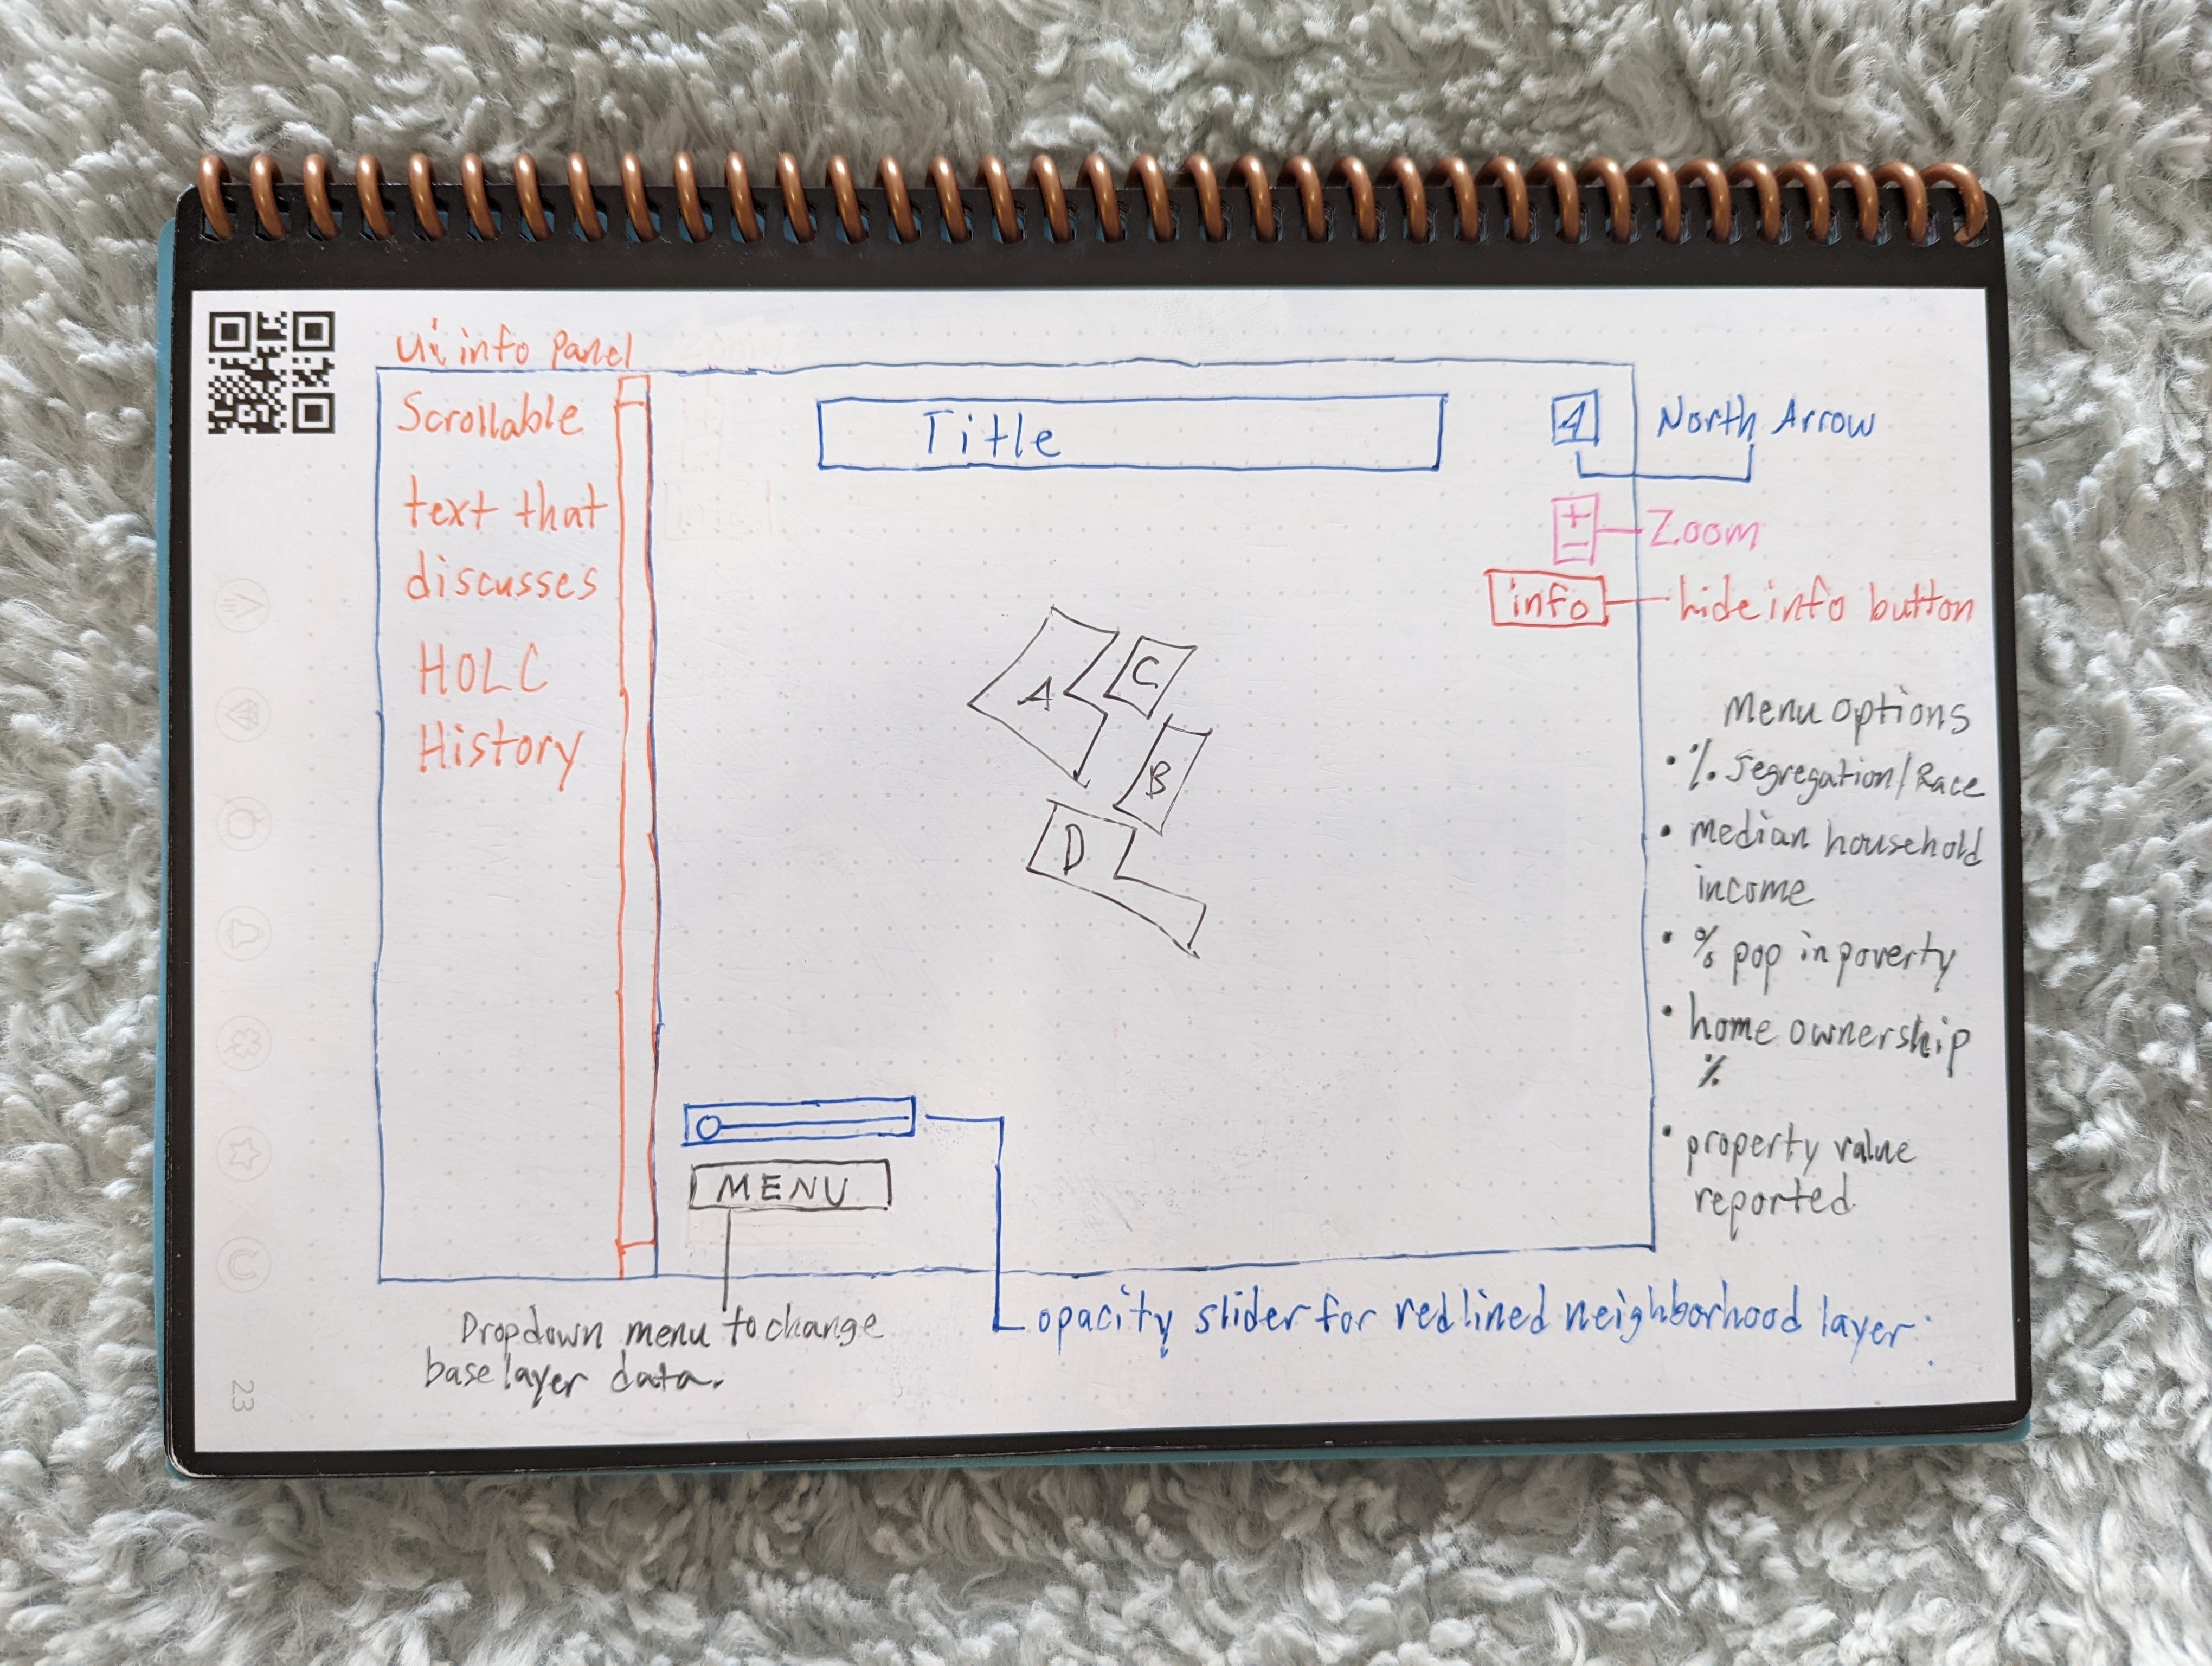 ui info panel
Scrollable
text that
discusses
HOLC
History
Title
4
North Arrow
+
-
Zoom
info
hide info button
A
C
B
D
Menu options
• % Segregation/Race
• median household
income
• % pop in poverty
• home ownership
%
• property value
reported
MENU
Dropdown menu to change
base layer data.
opacity slider for redlined neighborhood layer.
23